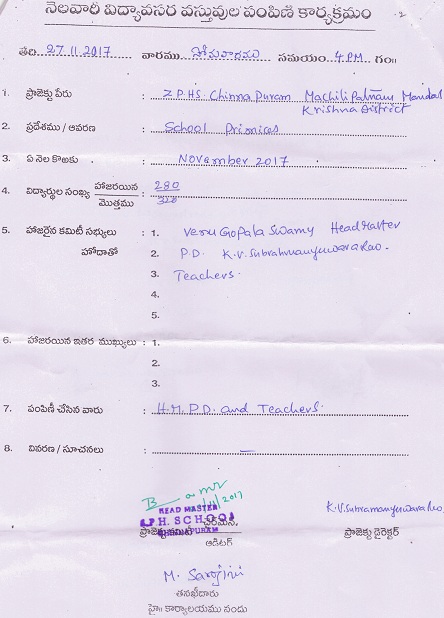 నెలవారీ విద్యావసర వస్తువుల పంపిణీ కార్యక్రమం
తేది.27.11.2017 వారము సోమవారము సమయం. 4 PM. గం॥
1. ప్రాజెక్టు పేరు : Z.P.HS. Chinna Puram Machilipatnam Mandal
Krishna District
2. ప్రదేశము / ఆవరణ : School Primices
3. ఏ నెల కొఱకు : November 2017
4. విద్యార్థుల సంఖ్య హాజరయిన : 280
మొత్తము
5. హాజరైన కమిటీ సభ్యులు : 1. Venu Gopala Swamy Head Master
హోదాతో 2. P.D. K.V. Subrahmanyeswara Rao.
3. Teachers.
4.
5.
6. హాజరయిన ఇతర ముఖ్యులు : 1.
2.
3.
7. పంపిణీ చేసిన వారు : H.M. P.D. and Teachers.
8. వివరణ / సూచనలు : —
HEAD MASTER
Z.P.H. SCHOOL
ప్రాజెక్టు కమిటీ చైర్మన్,
ఆడిటర్
K.V. Subramanyeswara Rao
ప్రాజెక్టు డైరెక్టర్
M. Sarojini
తనఖీదారు
హై॥ కార్యాలయము నందు